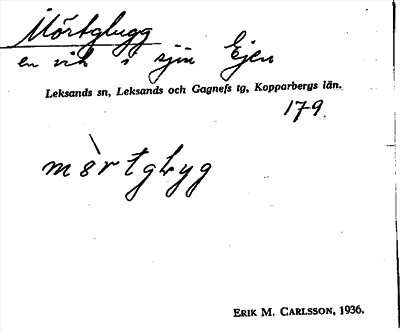 Mörtglugg
en vik i sjön Ejen
Leksands sn, Leksands och Gagnefs tg, Kopparbergs län.
179.
ERIK M. CARLSSON, 1936.